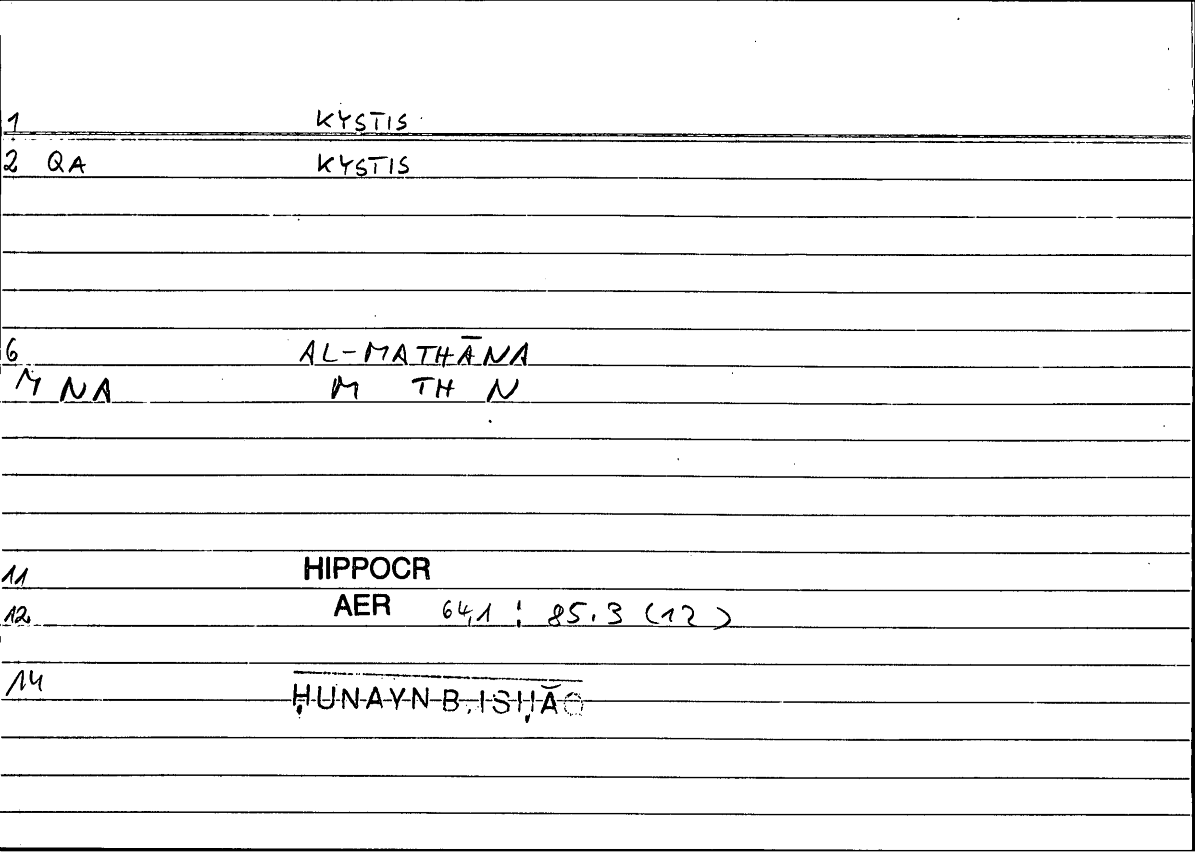 1 KYSTIS
2 QA KYSTIS
6 AL-MATHĀNA
M NA M TH N
11 HIPPOCR
12 AER 64,1 : 85.3 (12)
14 ḤUNAYN B. ISḤĀQ